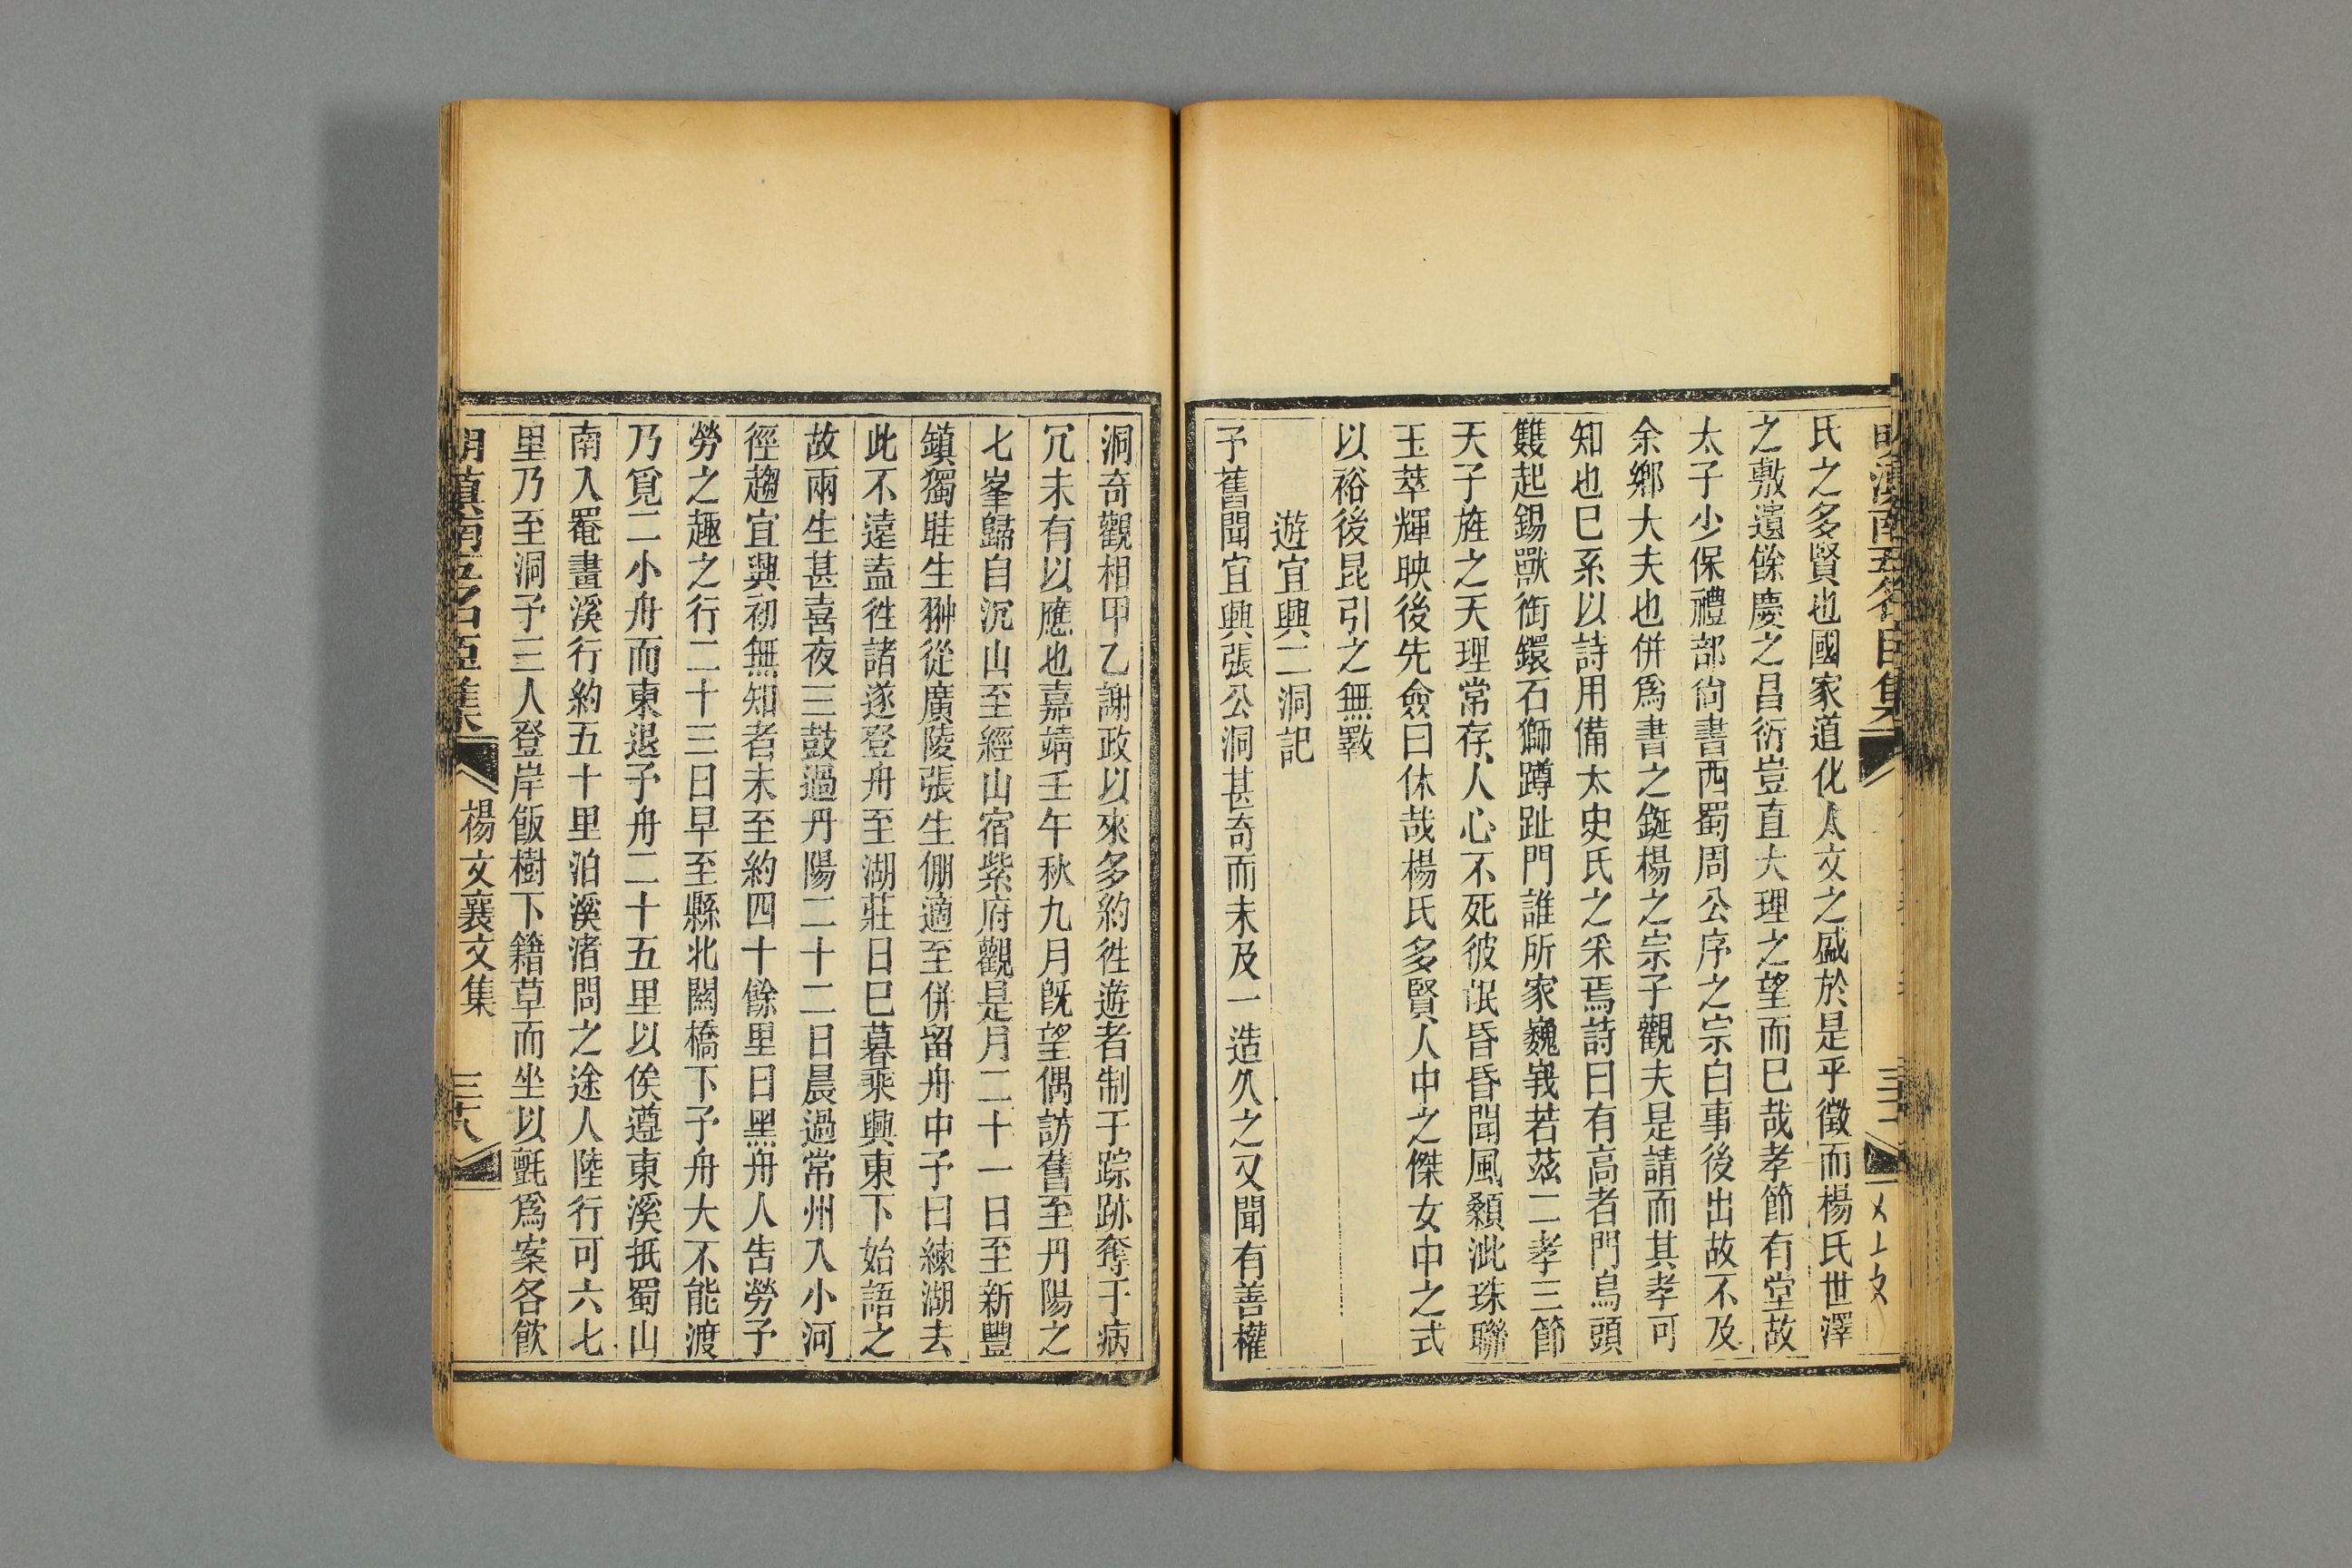 氏之多賢也國家道化人文之盛於是乎徵而楊氏世澤
之敷遺餘慶之昌衍豈直大理之望而巳哉孝節有堂故
太子少保禮部尙書西蜀周公序之宗白事後出故不及
余鄉大夫也併爲書之鋋楊之宗子觀夫是請而其孝可
知也巳系以詩用備太史氏之釆焉詩曰有高者門烏頭
雙起錫獸銜鐶石獅蹲趾門誰所家巍峩若茲二孝三節
天子旌之天理常存人心不死彼氓昏昏聞風顙泚珠聯
玉萃輝映後先僉曰休哉楊氏多賢人中之傑女中之式
以裕後昆引之無斁
遊宜興二洞記
予舊聞宜興張公洞甚奇而未及一造久之又聞有善權
洞奇觀相甲乙謝政以來多約徃遊者制于踪跡奪于病
冗未有以應也嘉靖壬午秋九月旣望偶訪舊至丹陽之
七峯歸自沉山至經山宿紫府觀是月二十一日至新豐
鎮獨眭生翀從廣陵張生倗適至併留舟中予曰練湖去
此不遠盍徃諸遂登舟至湖莊日巳暮乘興東下始語之
故兩生甚喜夜三鼓過丹陽二十二日晨過常州入小河
徑趨宜興初無知者未至約四十餘里日黑舟人告勞予
勞之趣之行二十三日早至縣北關橋下予舟大不能渡
乃覓二小舟而東退予舟二十五里以俟遵東溪抵蜀山
南入罨畫溪行約五十里泊溪渚問之途人陸行可六七
里乃至洞予三人登岸飯樹下籍草而坐以氈爲案各飮
明滇南五名臣集 楊文襄文集 三十八